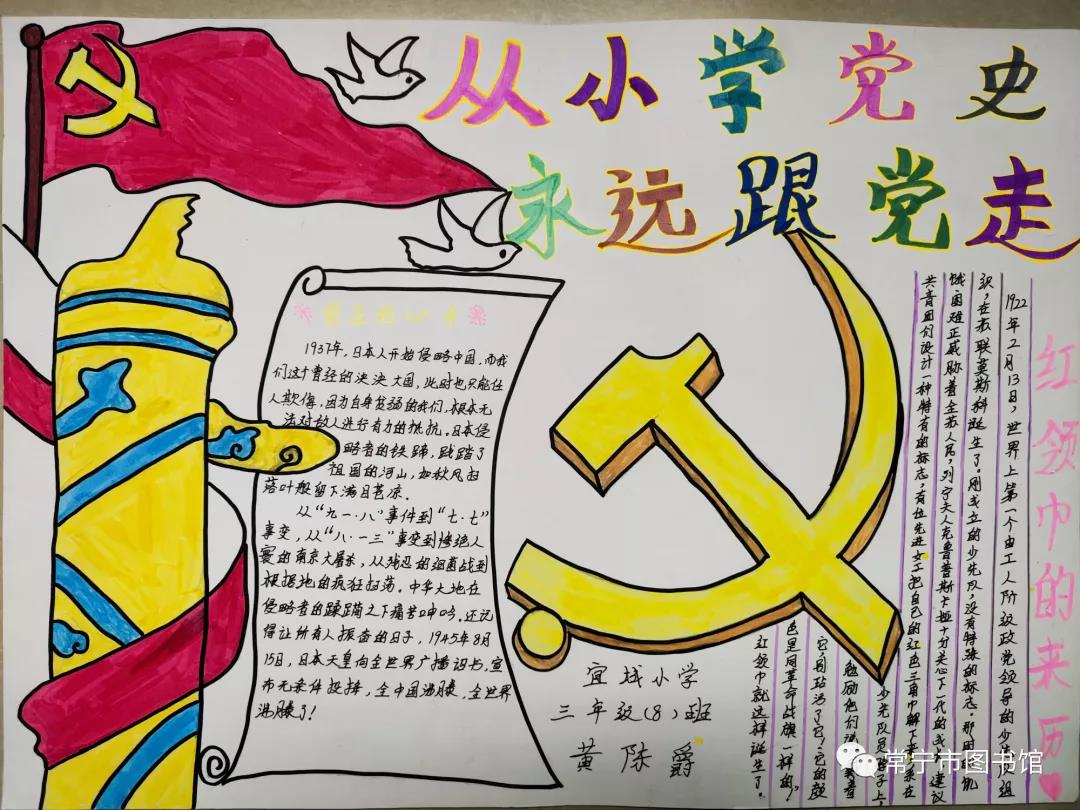 从小学党史
永远跟党走
党在我心中
1937年，日本人开始侵略中国，而我
们这个曾经的泱泱大国，此时也只能任
人欺侮，因为自身贫弱的我们，根本无
法对敌人进行有力的抵抗。日本侵
略者的铁蹄，践踏了
祖国的河山，如秋风扫
落叶般留下满目苍凉。
从“九一·八”事件到“七·七”
事变，从“八·一三”事变到惨绝人
寰的南京大屠杀，从残忍的细菌战到
根据地的疯狂扫荡。中华大地在
侵略者的蹂躏之下痛苦呻吟。还记
得让所有人振奋的日子，1945年8月
15日，日本天皇向全世界广播诏书，宣
布无条件投降，全中国沸腾，全世界
沸腾了！
红领巾的来历
1922年2月13日，世界上第一个由工人阶级政党领导的少先队组
织，在苏联莫斯科诞生了。刚成立的少先队，没有特殊的标志。那时
饿困难正威胁着全苏人民，列宁夫人克鲁普斯卡娅十分关心下一代的成
建议
共青团们设计一种特有的标志，有位先进女工把自己的红色三角巾解下来系在
少先队员
子上
勉励他们说
着
它，别玷污了它，它的颜
色是同革命战旗一样的。”
红领巾就这样诞生了。
宜城小学
三年级(8)班
黄陈爵
常宁市图书馆